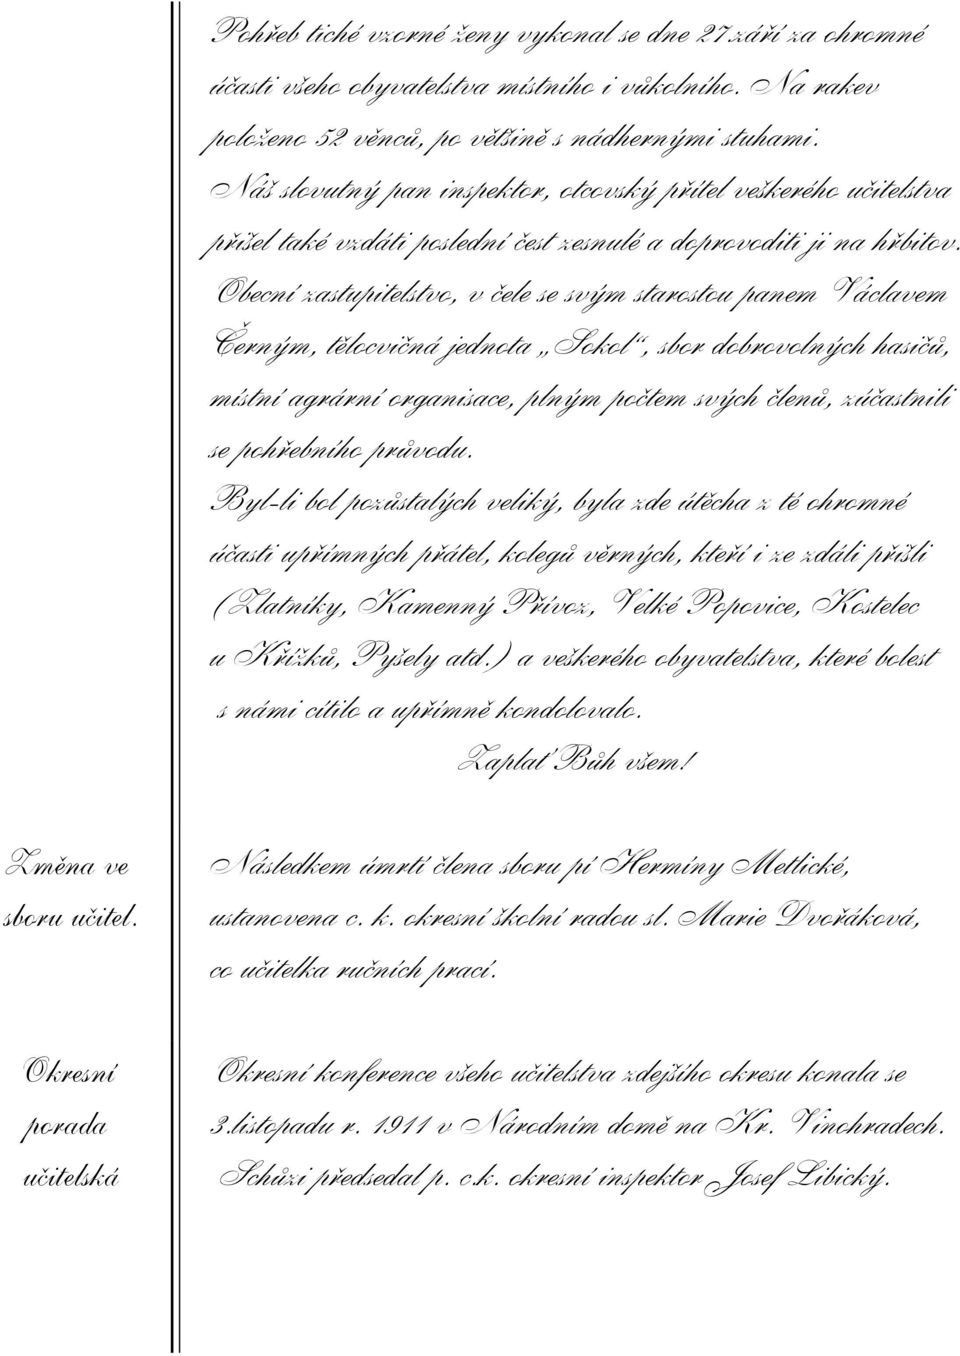 Pohřeb tiché vzorné ženy vykonal se dne 27.září za ohromné
účasti všeho obyvatelstva místního i vůkolního. Na rakev
položeno 52 věnců, po většině s nádhernými stuhami.
Náš slovutný pan inspektor, otcovský přítel veškerého učitelstva
přišel také vzdáti poslední čest zesnulé a doprovoditi ji na hřbitov.
Obecní zastupitelstvo, v čele se svým starostou panem Václavem
Černým, tělocvičná jednota „Sokol“, sbor dobrovolných hasičů,
místní agrární organisace, plným počtem svých členů, zúčastnili
se pohřebního průvodu.
Byl-li bol pozůstalých veliký, byla zde útěcha z té ohromné
účasti upřímných přátel, kolegů věrných, kteří i ze zdáli přišli
(Zlatníky, Kamenný Přívoz, Velké Popovice, Kostelec
u Křížků, Pyšely atd.) a veškerého obyvatelstva, které bolest
s námi cítilo a upřímně kondolovalo.
Zaplať Bůh všem!
Změna ve
sboru učitel.
Následkem úmrtí člena sboru pí Hermíny Metlické,
ustanovena c. k. okresní školní radou sl. Marie Dvořáková,
co učitelka ručních prací.
Okresní
porada
učitelská
Okresní konference všeho učitelstva zdejšího okresu konala se
3.listopadu r. 1911 v Národním domě na Kr. Vinohradech.
Schůzi předsedal p. c.k. okresní inspektor Josef Libický.